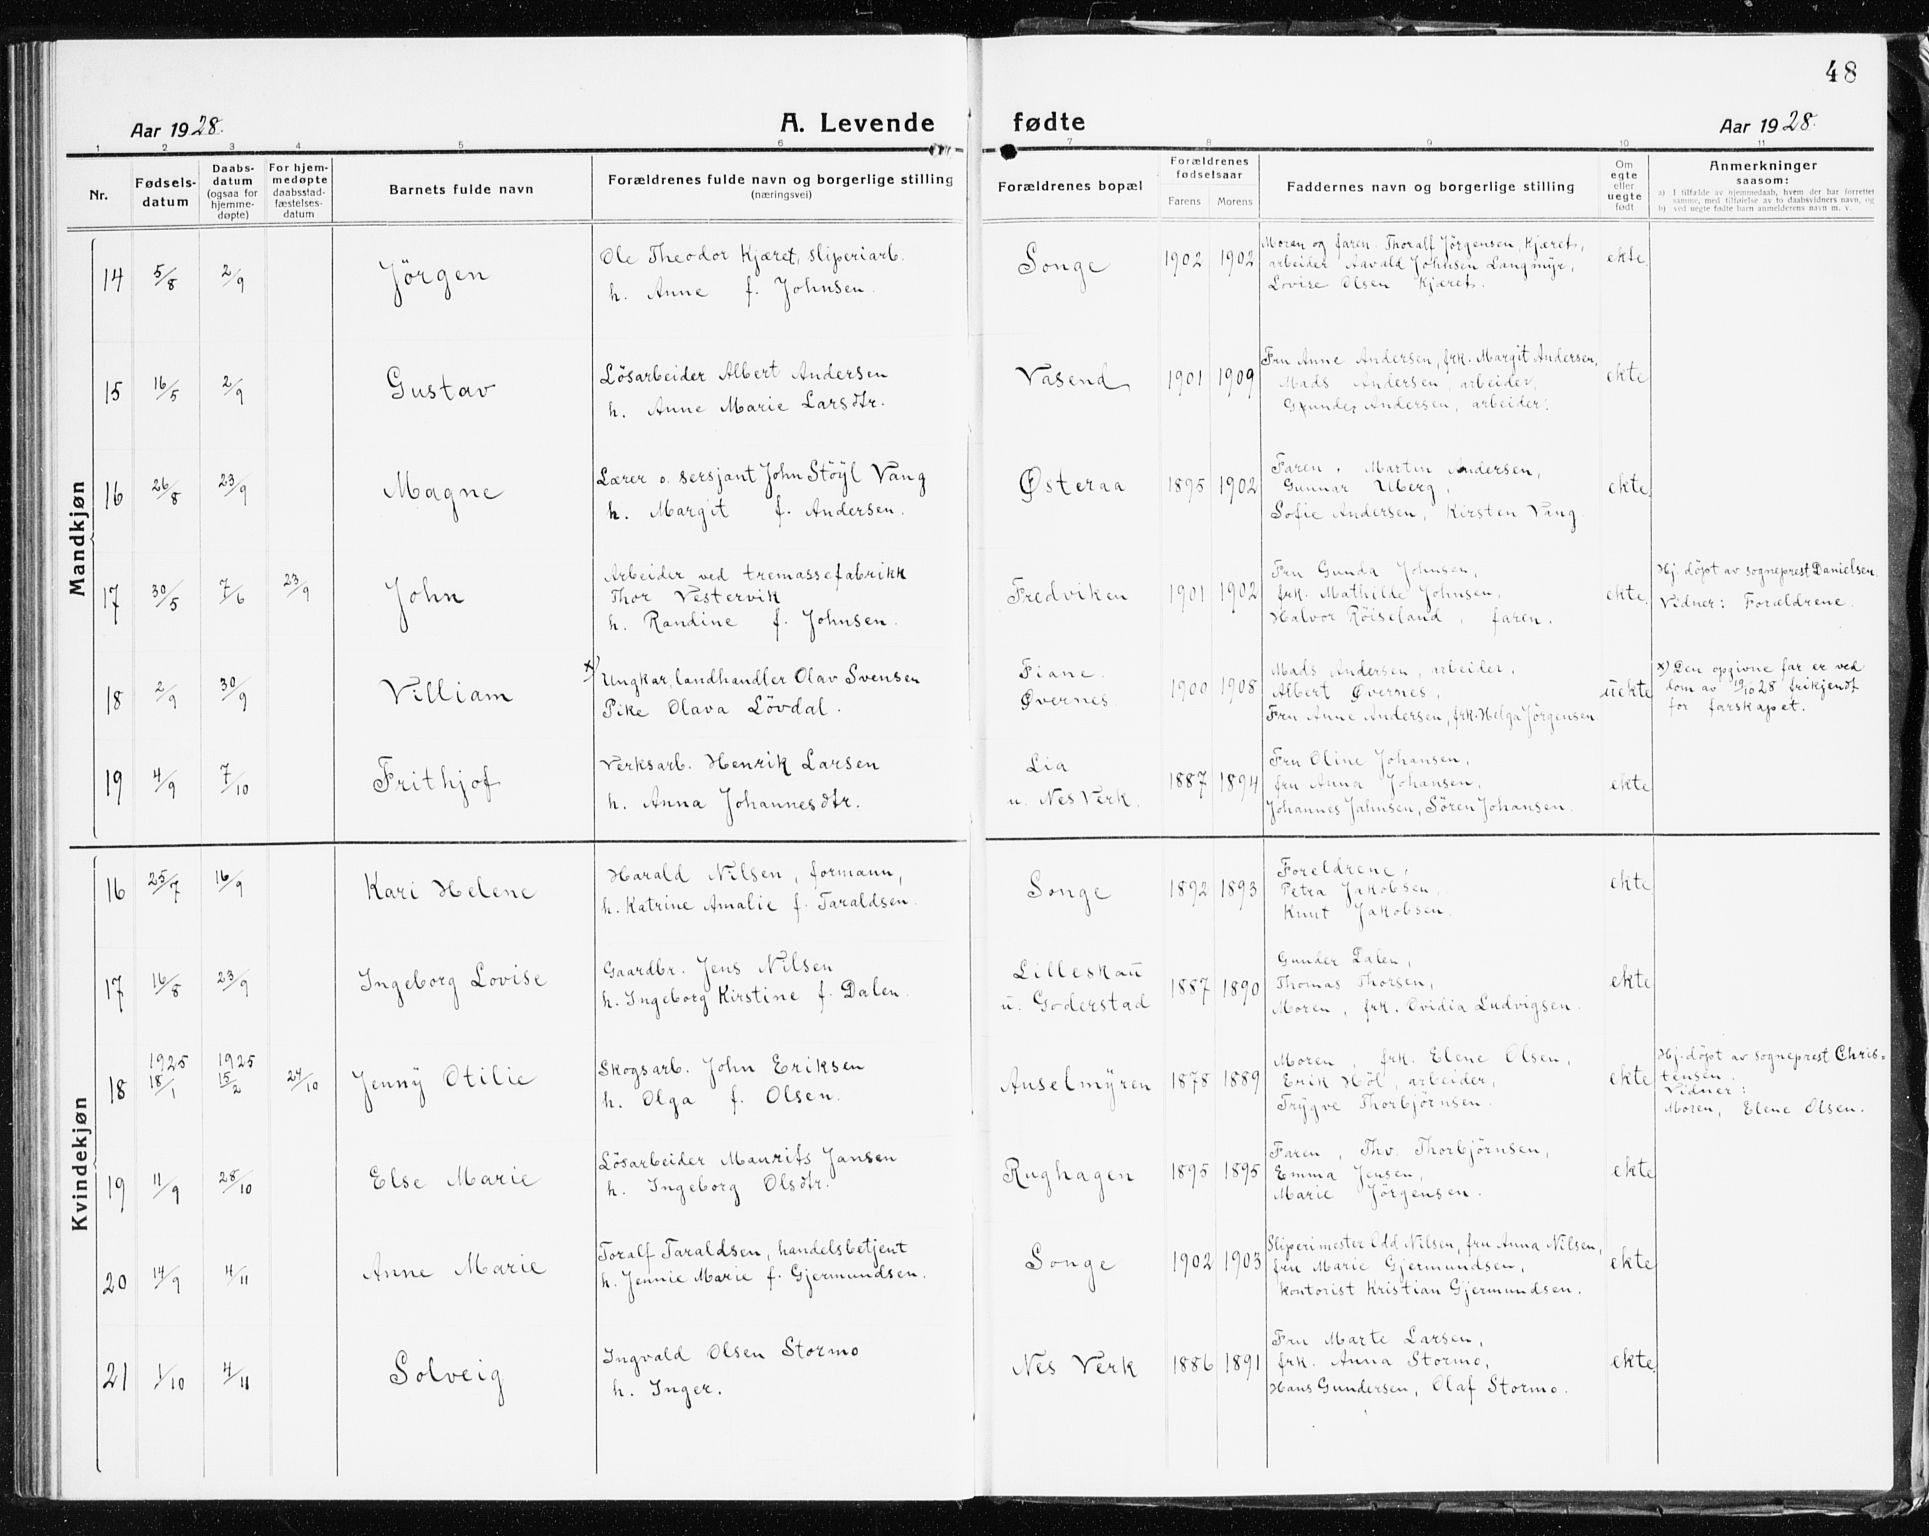 48
Aar 1928.
A. Levende fødte
Aar 1928.
1 2 3 4 5 6 7 8 9 10 11
Nr.
Fødsels-
datum
Daabs-
datum
(ogsaa for
hjemme-
døpte)
For hjem-
medøpte
daabsstad-
fæstelses-
datum
Barnets fulde navn
Forældrenes fulde navn og borgerlige stilling
(næringsvei)
Forældrenes bopæl
Forældrenes
fødselsaar
Farens Morens
Faddernes navn og borgerlige stilling
Om
egte
eller
uegte
født
Anmerkninger
saasom:
a) I tilfælde av hjemmedaab, hvem der har forrettet
samme, med tilføielse av to daabsvidners navn, og
b) ved uegte fødte barn anmelderens navn m. v.
Mandkjøn
14 5/8 2/9 Jörgen
Ole Theodor Kjæret, sliperiarb.
h. Anne f. Johnsen.
Songe 1902 1902
Moren og faren. Thoralf Jörgensen, Kjæret,
arbeider Aavald Johnsen Langmyr,
Lovise Olsen Kjæret.
ekte.
15 16/5 2/9 Gustav
Lösarbeider Albert Andersen
h. Anne Marie Larsdtr.
Vasend 1901 1909
Fru Anne Andersen, frk. Margit Andersen,
Mads Andersen, arbeider,
Gunder Andersen, arbeider.
ekte
16 26/8 23/9 Magne
Lærer o. sersjant John Stöyl Vang
h. Margit f. Andersen.
Østeraa 1895 1902
Faren, Martin Andersen,
Gunnar Uberg,
Sofie Andersen, Kirsten Vang
ekte.
17 30/5 7/6 23/9 John
Arbeider ved tremassefabrikk
Thor Vestervik
h. Randine f. Johnsen.
Fredviken 1901 1902
Fru Gunda Johnsen,
frk. Mathilde Johnsen,
Halvor Röiseland, faren.
ekte.
Hj. döpt av sogneprest Danielsen.
Vidner: Forældrene.
18 2/9 30/9 Villiam
x) Ungkar, landhandler Olav Svensen
Pike Olava Lövdal.
Fiane.
Øvernes. 1900 1908
Mads Andersen, arbeider,
Albert Øvernes,
Fru Anne Andersen, frk. Helga Jörgensen
uekte
x) Den opgivne far er ved
dom av 19/10 28 frikjendt
for farskapet.
19 4/9 7/10 Frithjof
Verksarb. Henrik Larsen
h. Anna Johannesdtr.
Lia
u. Nes Verk. 1887 1894
Fru Oline Johansen,
fru Anna Johansen,
Johannes Jahnsen, Sören Johansen.
ekte
Kvindekjøn
16 25/7 16/9 Kari Helene
Harald Nilsen, formann,
h. Katrine Amalie f. Taraldsen.
Songe 1892 1893
Foreldrene,
Petra Jakobsen,
Knut Jakobsen.
ekte
17 16/8 23/9 Ingeborg Lovise
Gaardbr. Jens Nilsen
h. Ingeborg Kirstine f. Dalen.
Lilleskau
u. Goderstad 1887 1890
Gunder Dalen,
Thomas Thorsen,
Moren, frk. Ovidia Ludvigsen.
ekte
18 1925 18/1 1925 15/2 24/10 Jenny Otilie
Skogsarb. John Eriksen
h. Olga f. Olsen.
Anselmyren 1878 1889
Moren, frk. Elene Olsen,
Erik Höl, arbeider,
Trygve Thorbjörnsen.
ekte
Hj. döpt av sogneprest Chris-
tensen.
Vidner:
Moren, Elene Olsen.
19 11/9 28/10 Else Marie
Lösarbeider Maurits Jansen
h. Ingeborg Olsdtr.
Rughagen 1895 1895
Faren, Thv. Thorbjörnsen,
Emma Jensen,
Marie Jörgensen.
ekte
20 14/9 4/11 Anne Marie
Toralf Taraldsen, handelsbetjent
h. Jennie Marie f. Gjermundsen.
Songe 1902 1903
Sliperimester Odd Nilsen, fru Anna Nilsen,
fru Marie Gjermundsen,
kontorist Kristian Gjermundsen.
ekte
21 1/10 4/11 Solveig
Ingvald Olsen Stormo
h. Inger.
Nes Verk 1886 1891
Fru Marte Larsen,
frk. Anna Stormo,
Hans Gundersen, Olaf Stormo.
ekte.